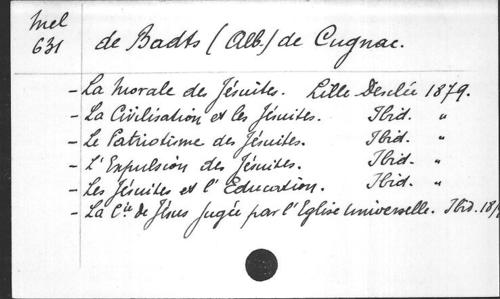 Mel
631
de Badts (Alb.) de Cugnac.
- La Morale des Jésuites. Lille Desclée 1879.
- La Civilisation et les Jésuites. Ibid. "
- Le Patriotisme des Jésuites. Ibid. "
- L'Expulsion des Jésuites. Ibid. "
- Les Jésuites et l'Education. Ibid. "
- La Cie de Jésus jugée par l'Eglise universelle. Ibid.